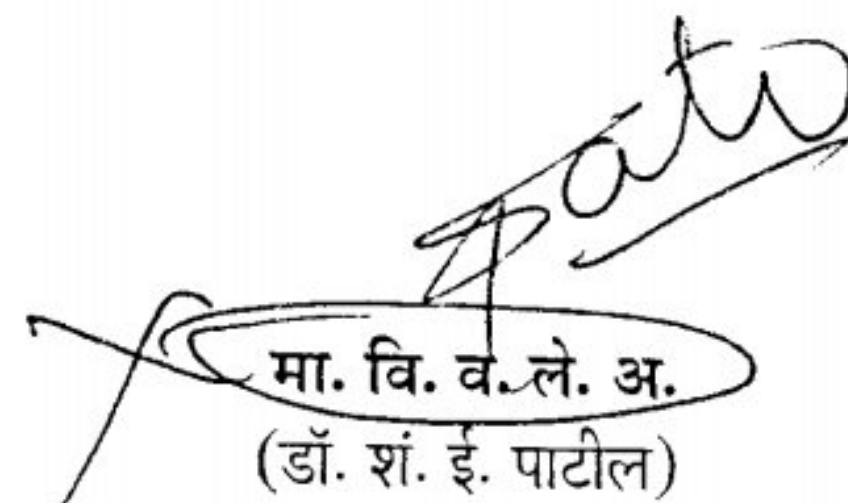 मा. वि. व. ले. अ.
(डॉ. शं. ई. पाटील)